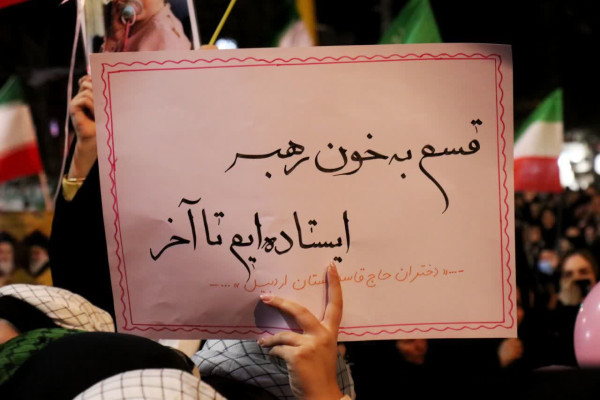 قسم به خون رهبر
ایستاده‌ایم تا آخر
دختران حاج قاسم استان اردبیل